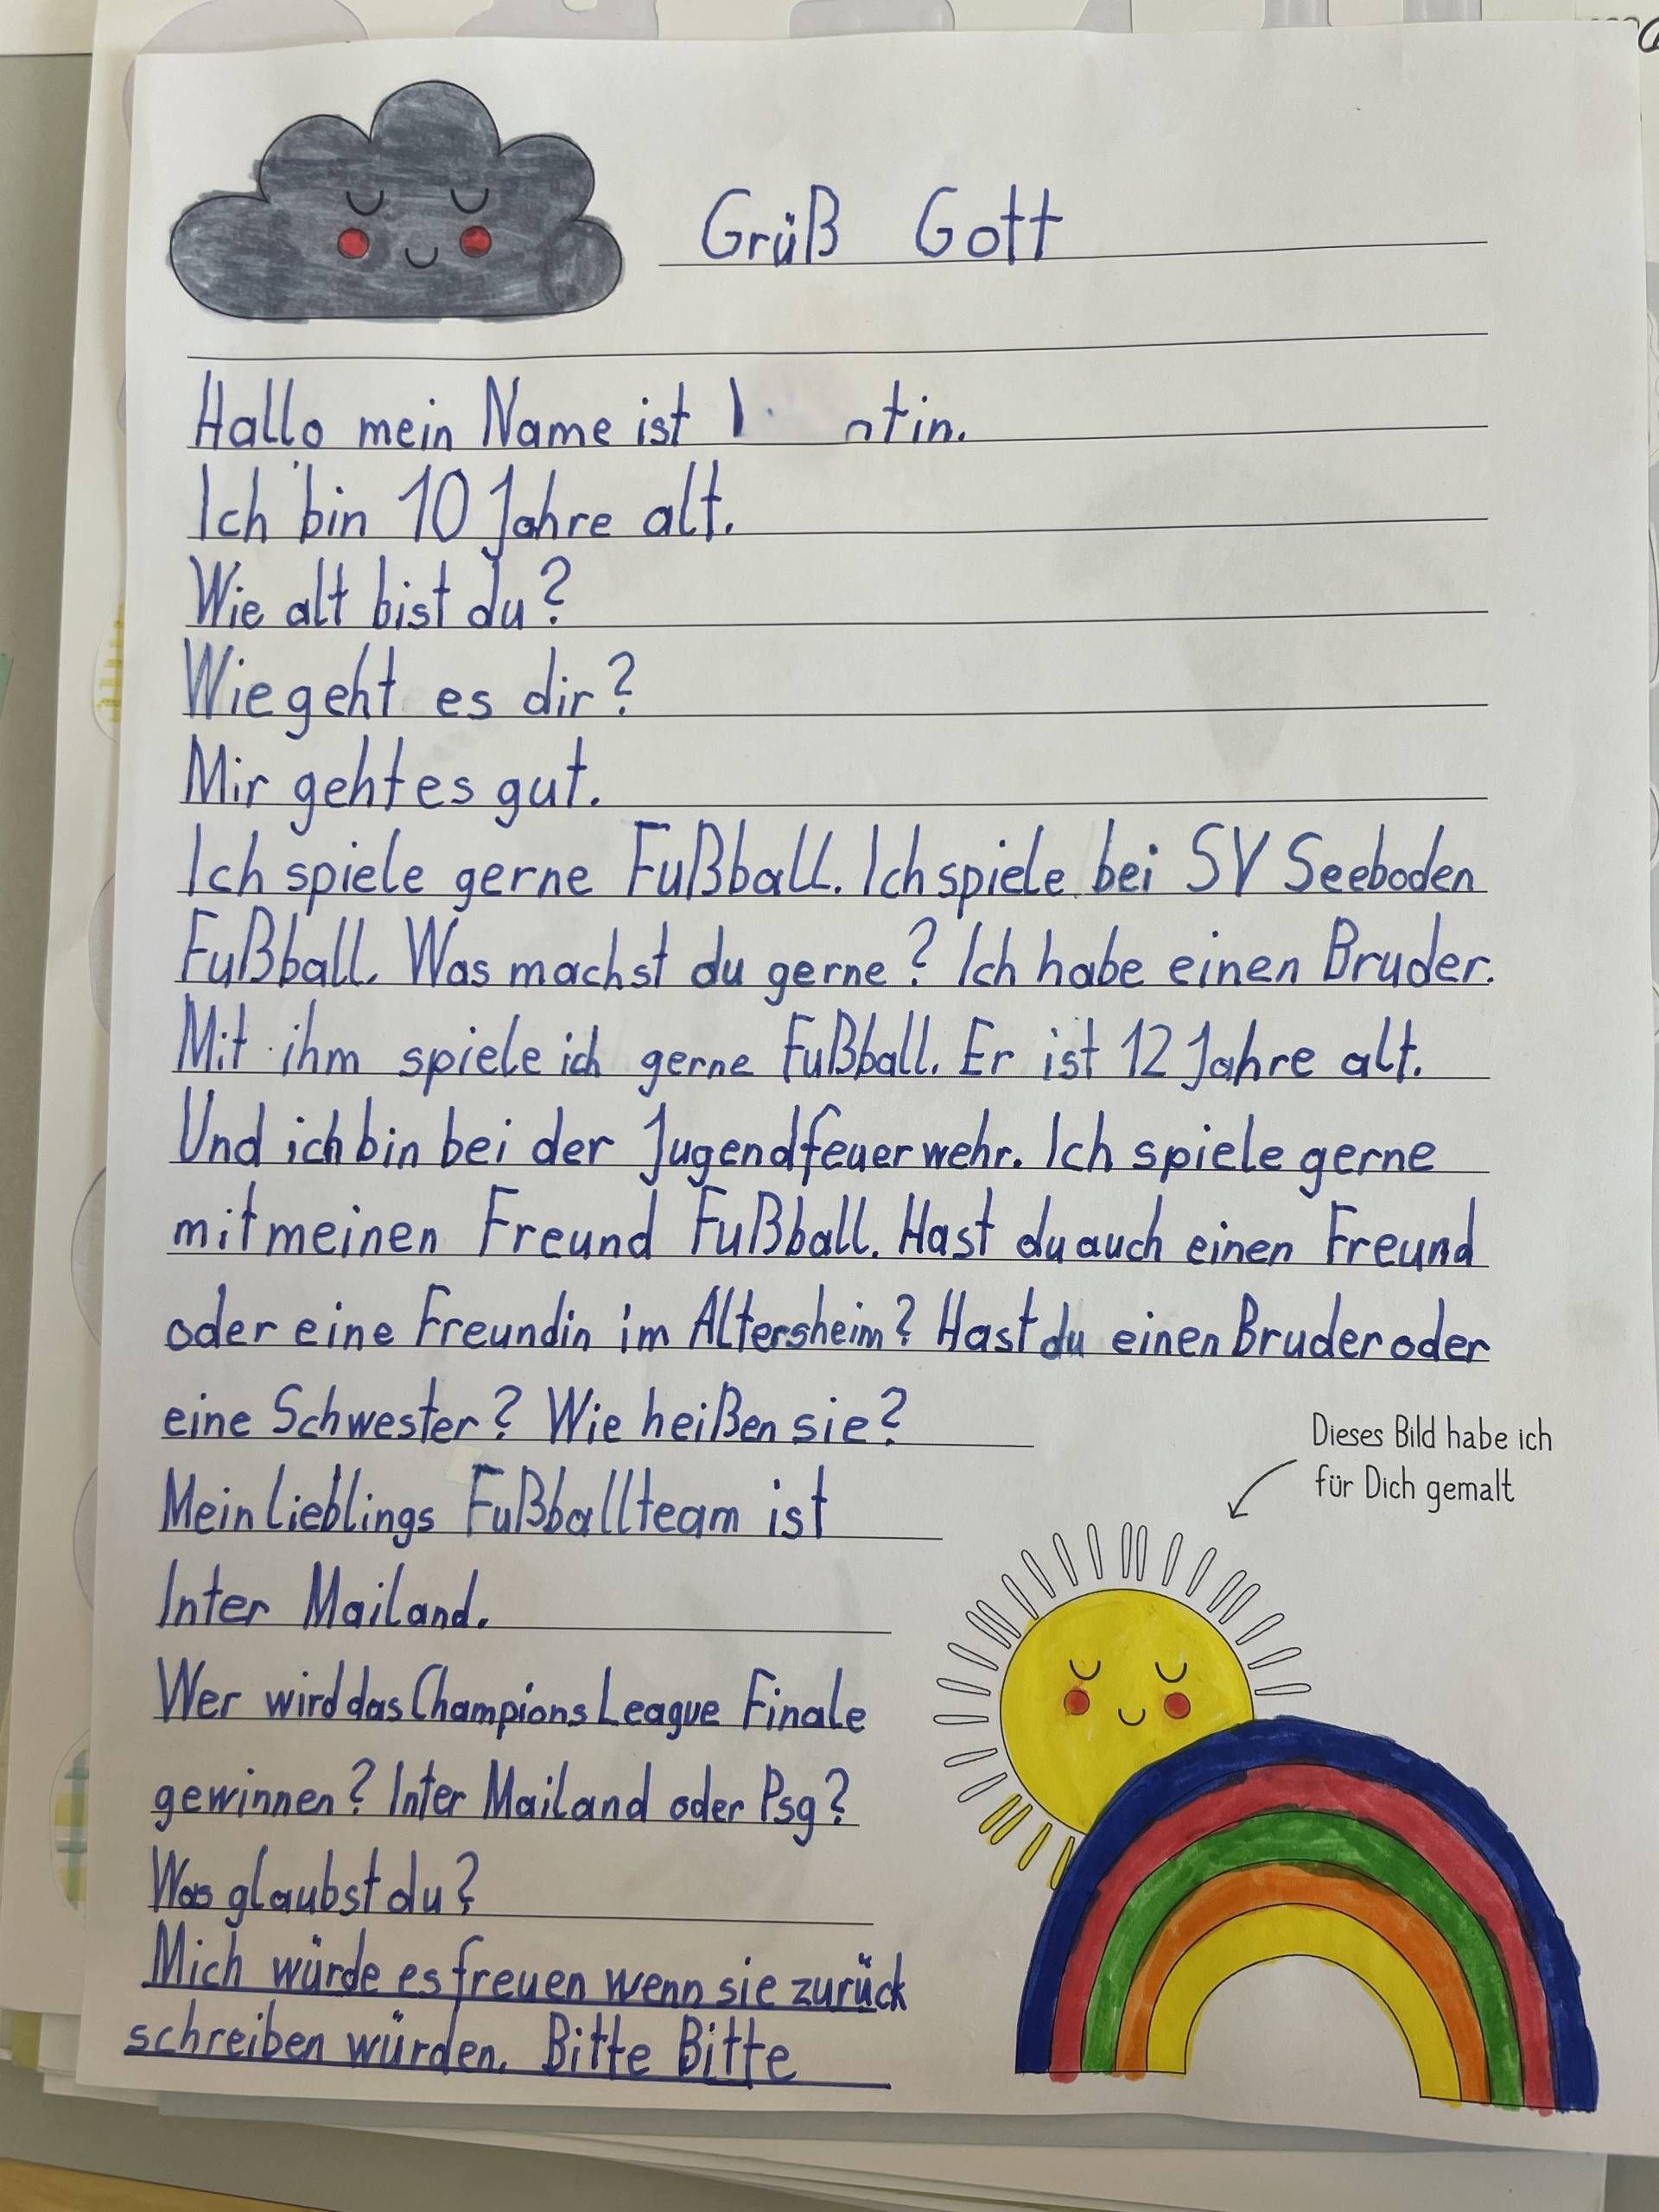 Grüß Gott
Hallo mein Name ist
Ich bin 10 Jahre alt.
Wie alt bist du?
Wie geht es dir?
Mir geht es gut.
Ich spiele gerne Fußball. Ich spiele bei SV Seeboden
Fußball. Was machst du gerne? Ich habe einen Bruder.
Mit ihm spiele ich gerne Fußball. Er ist 12 Jahre alt.
Und ich bin bei der Jugendfeuerwehr. Ich spiele gerne
mit meinen Freund Fußball. Hast du auch einen Freund
oder eine Freundin im Altersheim? Hast du einen Bruder oder
eine Schwester? Wie heißen sie?
Mein lieblings Fußballteam ist
Inter Mailand.
Wer wird das Champions League Finale
gewinnen? Inter Mailand oder Psg?
Was glaubst du?
Mich würde es freuen wenn sie zurück
schreiben würden. Bitte Bitte
Dieses Bild habe ich
für Dich gemalt